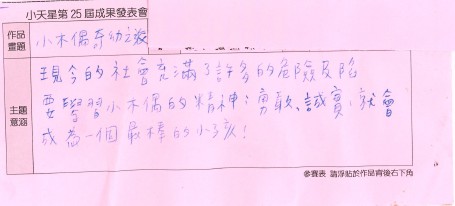 小天星第25屆成果發表會
作品靈題
小木偶奇幻之旅
主題意涵
現今的社會充滿了許多的危險及陷
要學習小木偶的精神：勇敢、誠實、就會
成為一個最棒的小孩！
參賽表 請浮貼於作品背後右下角